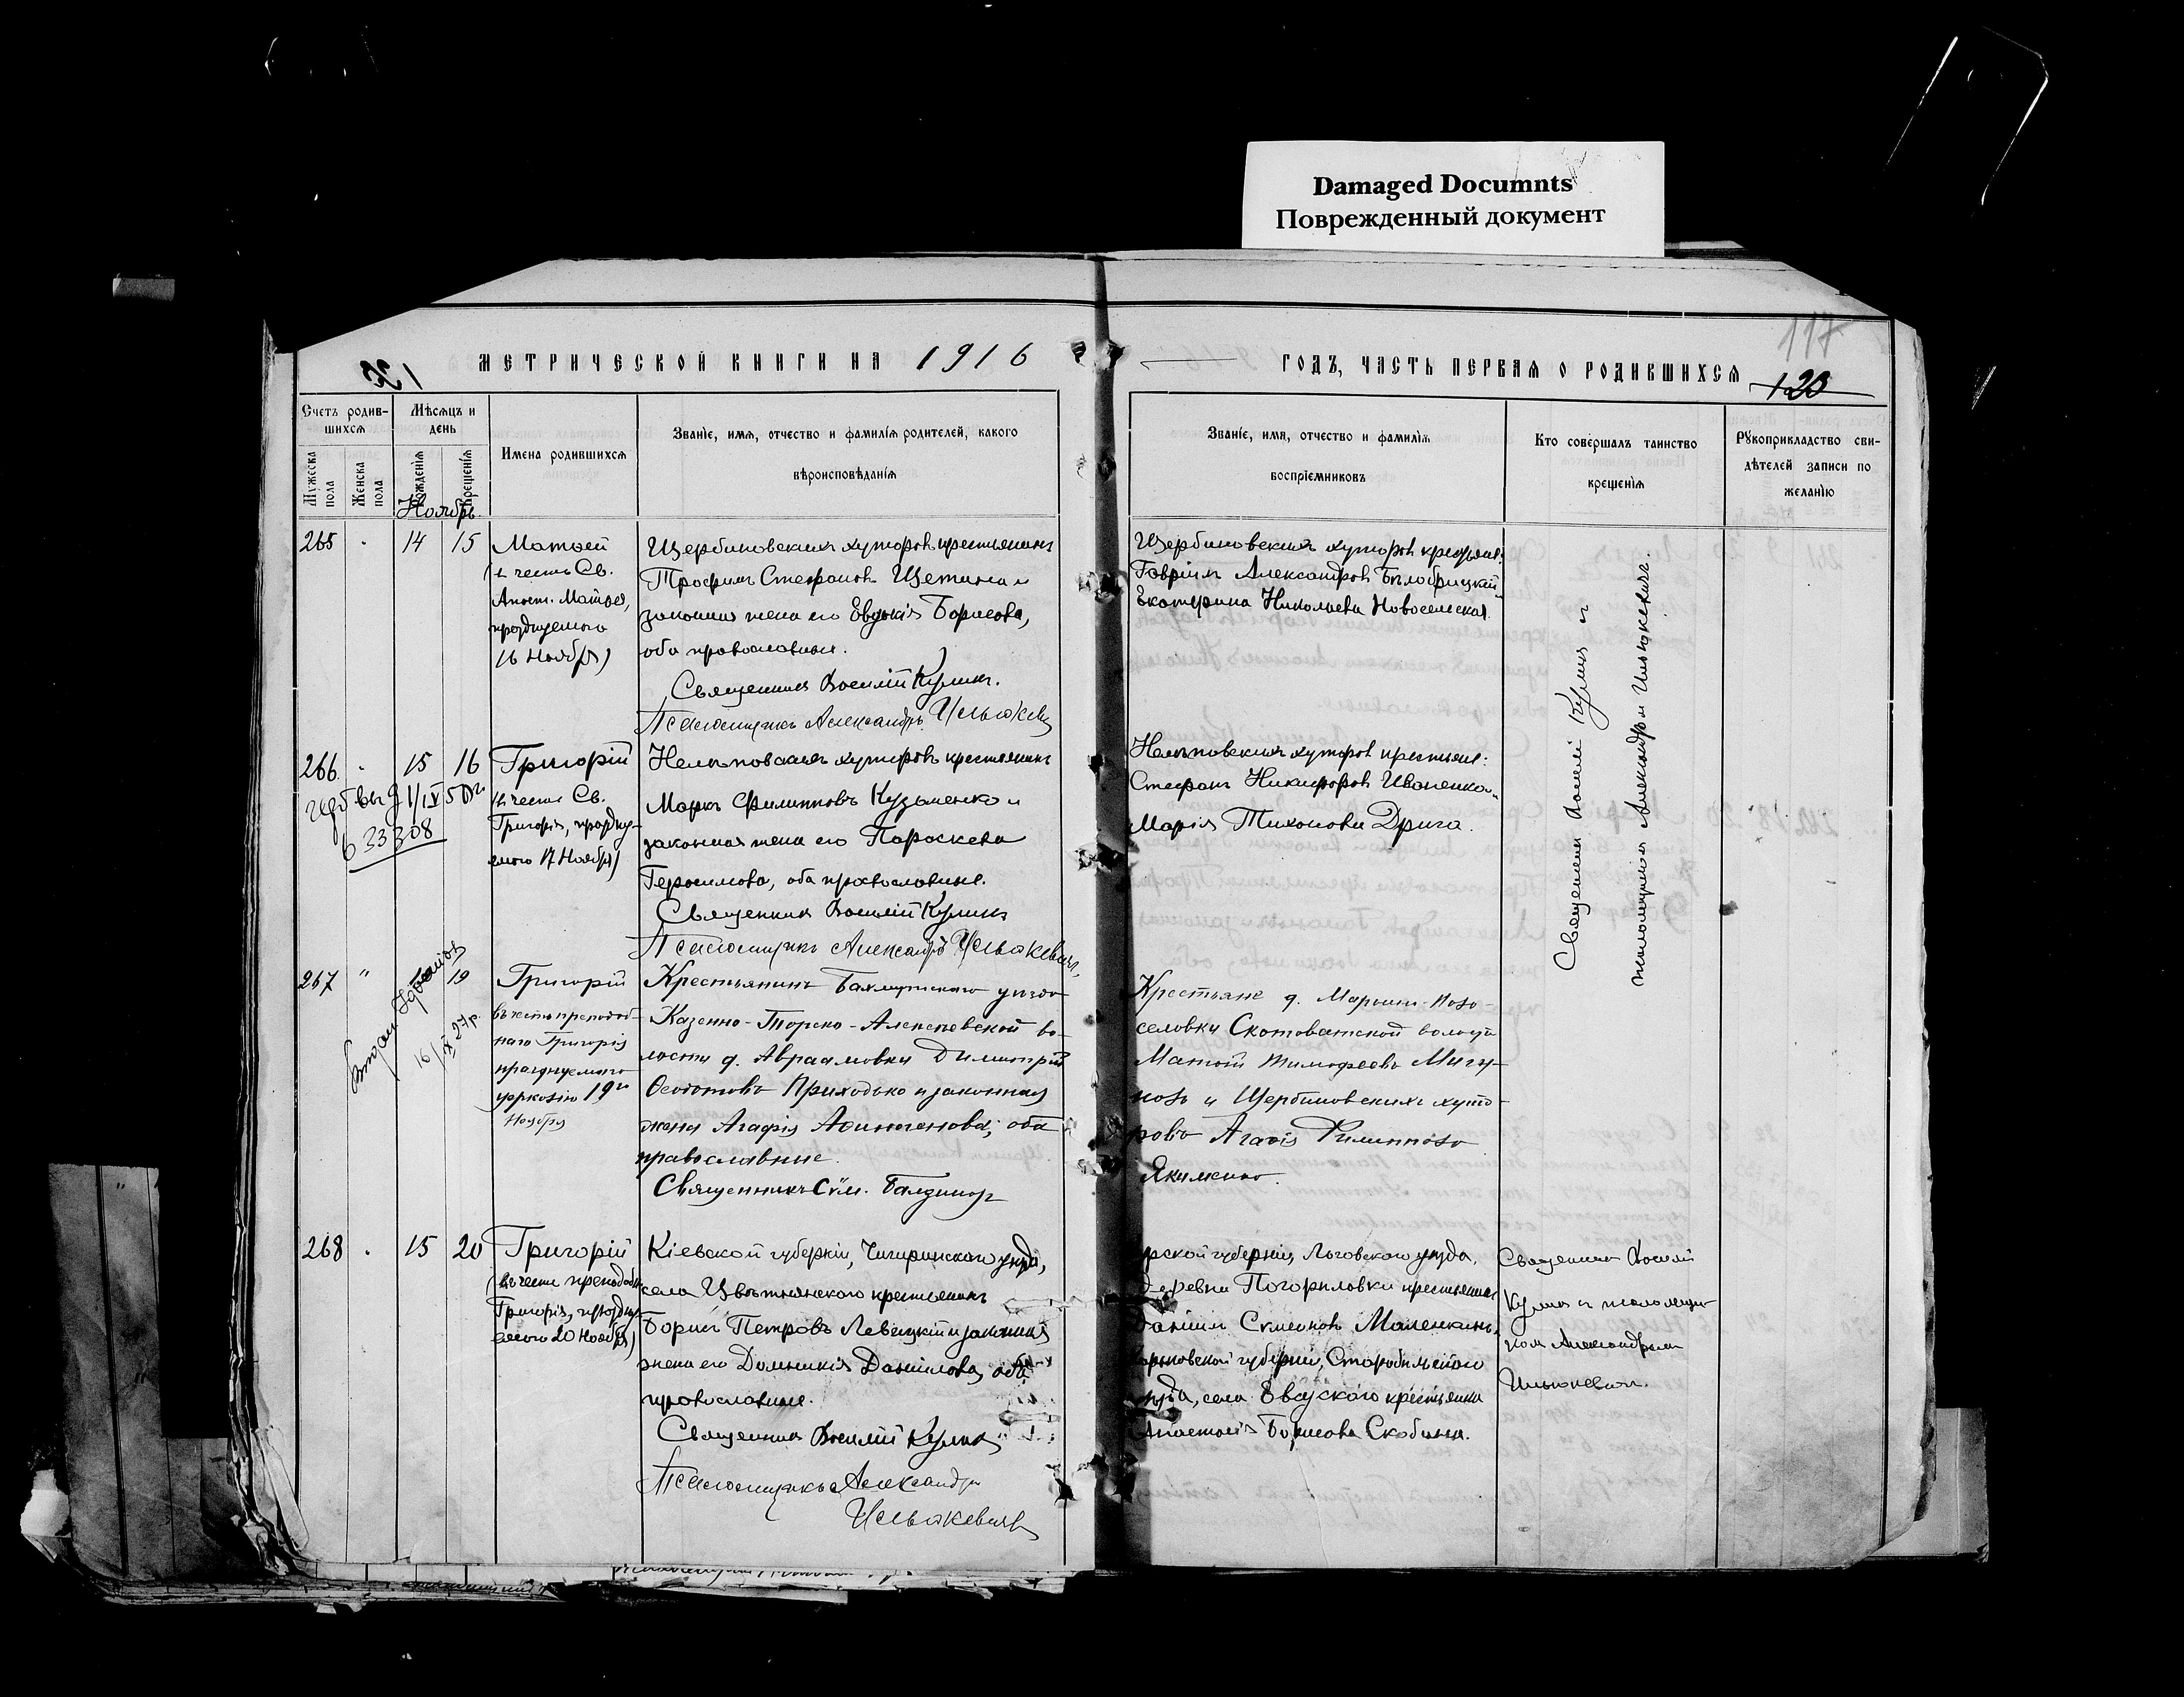 Damaged Documnts
Поврежденный документ
МЕТРИЧЕСКОЙ КНИГИ НА 1916
ГОДЪ, ЧАСТЬ ПЕРВАЯ О РОДИВШИХСЯ
117
120
Счетъ родив-
шихся
Мужеска пола
Женска пола
Мѣсяцъ и
день
Рожденія
Крещенія
Имена родившихся
Званіе, имя, отчество и фамилія родителей, какого
вѣроисповѣданія
Званіе, имя, отчество и фамилія
воспріемниковъ
Кто совершалъ таинство
крещенія
Рукоприкладство сви-
дѣтелей записи по
желанію
Ноябрь.
265 14 15
Матѳей
(въ честь Св.
Апост. Матѳея,
празднуемого
16 Ноября)
Щербиновскихъ хуторовъ крестьянинъ
Трофимъ Стефановъ Щетина и
законная жена его Евдокія Борисова,
оба православные.
Священникъ Василій Куликъ.
Псаломщикъ Александръ
Щербиновскихъ хуторовъ крестьяне:
Гавріилъ Александровъ Бѣлобрицкій и
Екатерина Николаева Новосельская.
Священникъ Василій Куликъ и
псаломщикъ Александръ Ильюкевичъ.
266 15 16
1/IX 50 г.
633308
Григорій
(въ честь Св.
Григорія, праздну-
емого 17 Ноября)
Нелѣповскихъ хуторовъ крестьянинъ
Маркъ Филипповъ Кузьменко и
законная жена его Параскева
Герасимова, оба православные.
Священникъ Василій Куликъ
Псаломщикъ Александръ Ильюкевичъ.
Нелѣповскихъ хуторовъ крестьяне:
Стефанъ Никифоровъ Иваненко и
Марія Тихонова Дрига.
267 " 19
16/IX 27 р.
Григорій
въ честь преподоб-
наго Григорія
празднуемаго
церковію 19го
Ноября
Крестьянинъ Бахмутскаго уѣзда
Казенно-Торско-Алексѣевской во-
лости д. Авраамовки Димитрій
Ѳеодотовъ Приходько и законная
жена Агафія Аѳиногенова, оба
православные.
Священникъ Сѵм.
Крестьяне д. Марьины-Ново-
селовки Скотоватской волости
Матѳій Тимофеевъ Мигу-
новъ и Щербиновскихъ хуто-
ровъ Агафія Филиппова
Якименко.
268 15 20
Григорій
(въ честь преподобн.
Григорія, праздну-
емого 20 Ноября)
Кіевской губерніи, Чигиринскаго уѣзда,
села Цвѣтнянского крестьянинъ
Борисъ Петровъ Левицкій и законная
жена его Домникія Данилова, оба
православные.
Священникъ Василій Куликъ
Псаломщикъ Александръ
Ильюкевичъ
урской губерніи, Льговского уѣзда,
деревни Погориловки крестьянинъ
Даніилъ Симеоновъ Маленкинъ,
арьковской губерніи, Старобѣльскаго
уѣзда, села Евсуского крестьянка
Анастасія Борисова Скобина.
Священникъ Василій
Куликъ и псаломщи-
комъ Александромъ
Ильюкевичъ.